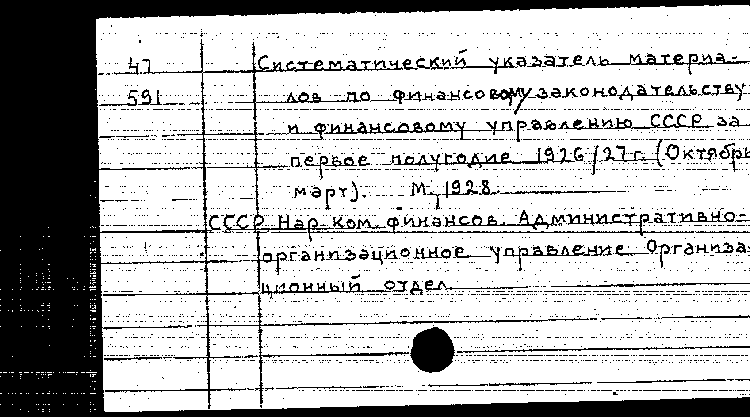 47 Систематический указатель материа-
591 лов по финансовому законодательству
и финансовому управлению СССР за
первое полугодие 1926/27 г. (Октябрь
март). М., 1928.
СССР Нар. ком. финансов. Административно-
организационное управление. Организа-
ционный отдел.